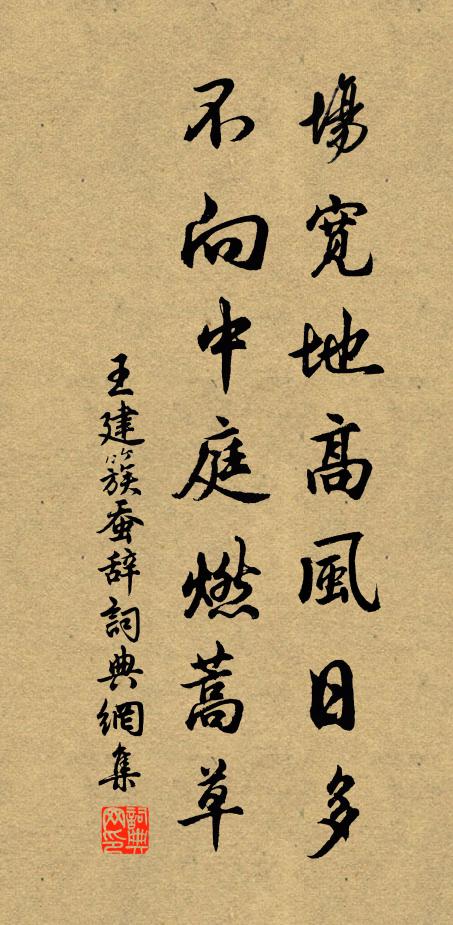 場寬地高風日多
不向中庭燃蒿草
王建簇蚕辞詞典網集
詞典
网印